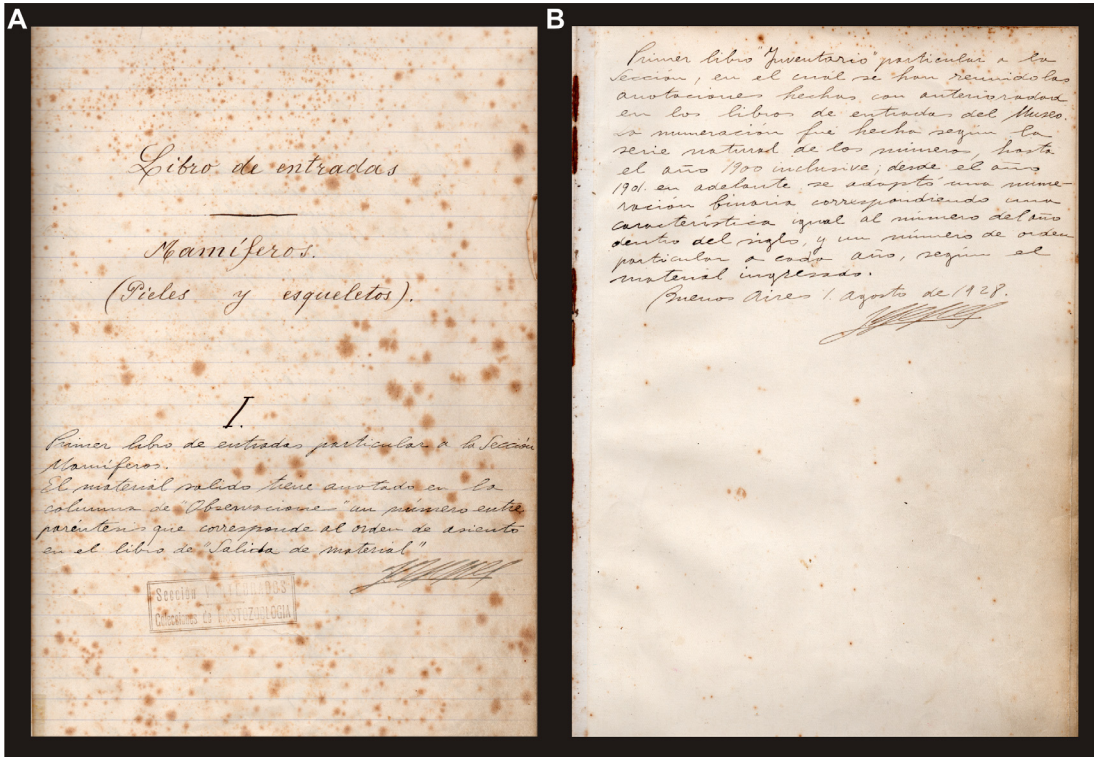 A
Libro de entradas
Mamíferos.
(Pieles y esqueletos).
I.
Primer libro de entradas particular a la Sección
Mamíferos.
El material salido tiene anotado en la
columna de "Observaciones" un número entre
paréntesis que corresponde al orden de asiento
en el libro de "Salida de material"
Sección
Colecciones de MASTOZOOLOGIA
B
Primer libro "Inventario" particular a la
Sección, en el cual se han reunido las
anotaciones hechas con anterioridad
en los libros de entradas del Museo.
La numeración fué hecha según la
serie natural de los números, hasta
el año 1900 inclusive; desde el año
1901 en adelante se adaptó una nume-
ración binaria correspondiendo una
característica igual al número del año
dentro del siglo, y un número de orden
particular a cada año, según el
material ingresado.
Buenos Aires 1. agosto de 1928.